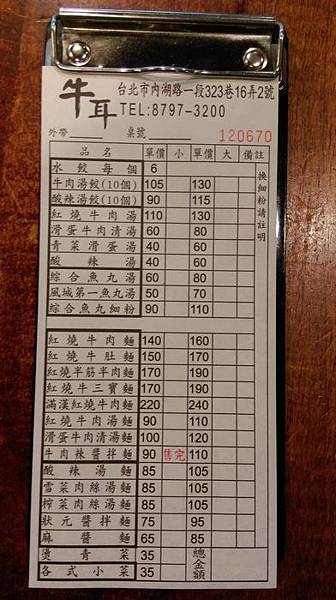 牛耳
台北市內湖路一段323巷16弄2號
TEL:8797-3200
外帶 桌號 120670
品名 單價 小 單價 大 備註
水餃每個 6
牛肉湯餃(10個) 105 130
酸辣湯餃(10個) 90 115
紅燒牛肉湯 110 130
滑蛋牛肉清湯 60 80
青菜滑蛋湯 40 60
酸辣湯 40 60
綜合魚丸湯 60 80
風城第一魚丸湯 50 70
綜合魚丸細粉 90 110
換細粉請註明
紅燒牛肉麵 140 160
紅燒牛肚麵 150 170
紅燒半筋半肉麵 170 190
紅燒牛三寶麵 170 190
滿漢紅燒牛肉麵 220 240
紅燒牛肉湯麵 90 110
滑蛋牛肉清湯麵 100 120
牛肉辣醬拌麵 90 售完 110
酸辣湯麵 85 105
雪菜肉絲湯麵 85 105
榨菜肉絲湯麵 85 105
狀元醬拌麵 75 95
麻醬麵 65 85
燙青菜 35
各式小菜 35
總金額